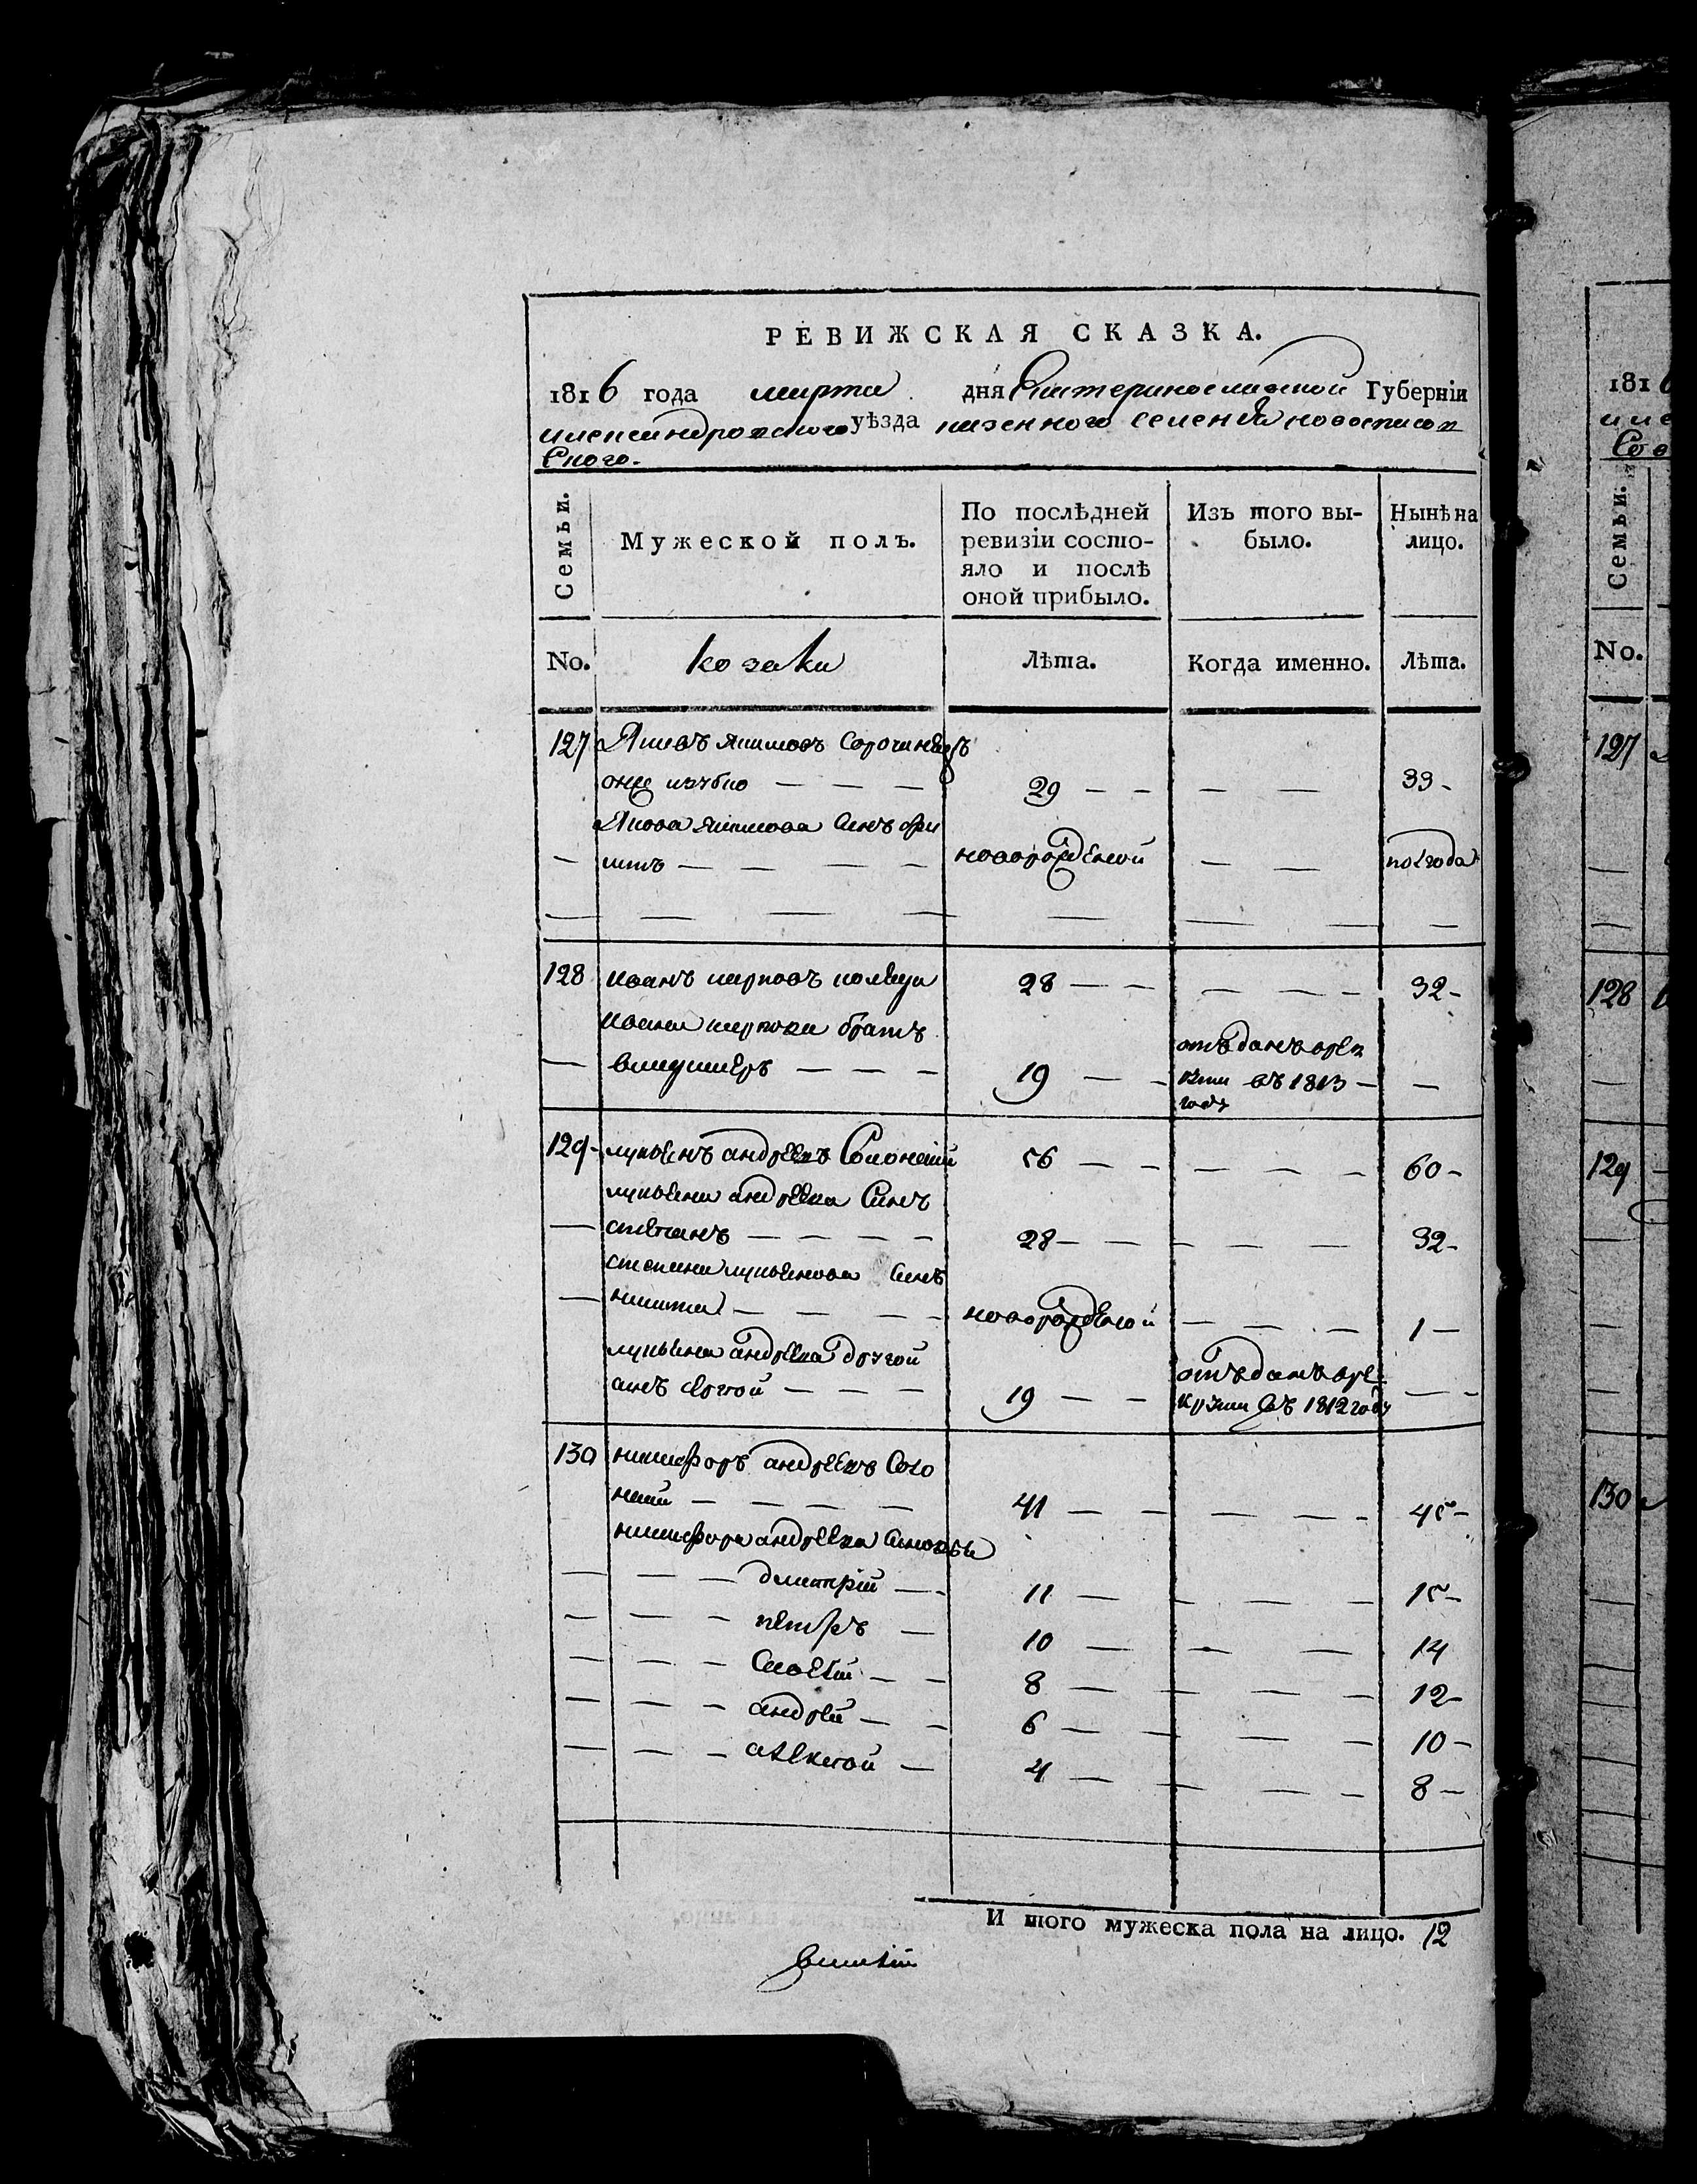 РЕВИЖСКАЯ СКАЗКА.
1816 года марта дня Екатеринославской Губернiи
александровского уѣзда казенного селенiя новоспасов
Ского.
Семьи.
Мужеской полъ.
По послѣдней ревизiи состо-
яло и послѣ
оной прибыло.
Изъ того вы-
было.
Нынѣ на
лицо.
No.
козаки
Лѣта.
Когда именно.
Лѣта.
127 Яковъ Якимовъ Сорочинецъ
онже 29 33
Якова Якимова Синъ
новорожденой полгода
128 иванъ марковъ 28 32
ивана маркова братъ
19 отъданъ врек
въ 1813
году
129 лукьянъ андреевъ Солонский 56 60
лукьяна андреева Синъ
степанъ 28 32
степана лукьянова Синъ
никита новорожденой 1
лукьяна андреева другой
синъ 19 отъданъ вре
круты въ 1812 году
130 никифоръ андреевъ Соло
41 45
никифора андреева Синовья
дмитрiй 11 15
петръ 10 14
8 12
андрей 6 10
алексой 4 8
И того мужеска пола на лицо. 12
1816
Семьи.
No.
127
128
129
130